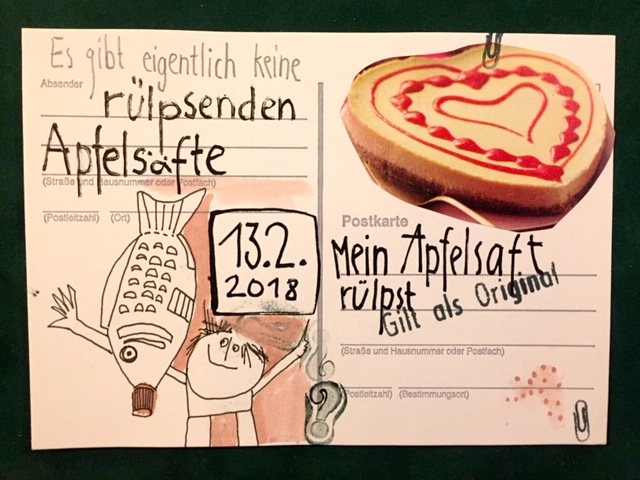 Es gibt eigentlich keine
Absender
rülpsenden
Apfelsäfte
(Straße und Hausnummer oder Postfach)
(Postleitzahl) (Ort)
13.2.
2018
Postkarte
Mein Apfelsaft
rülpst
Gilt als Original
(Straße und Hausnummer oder Postfach)
(Postleitzahl) (Bestimmungsort)
?